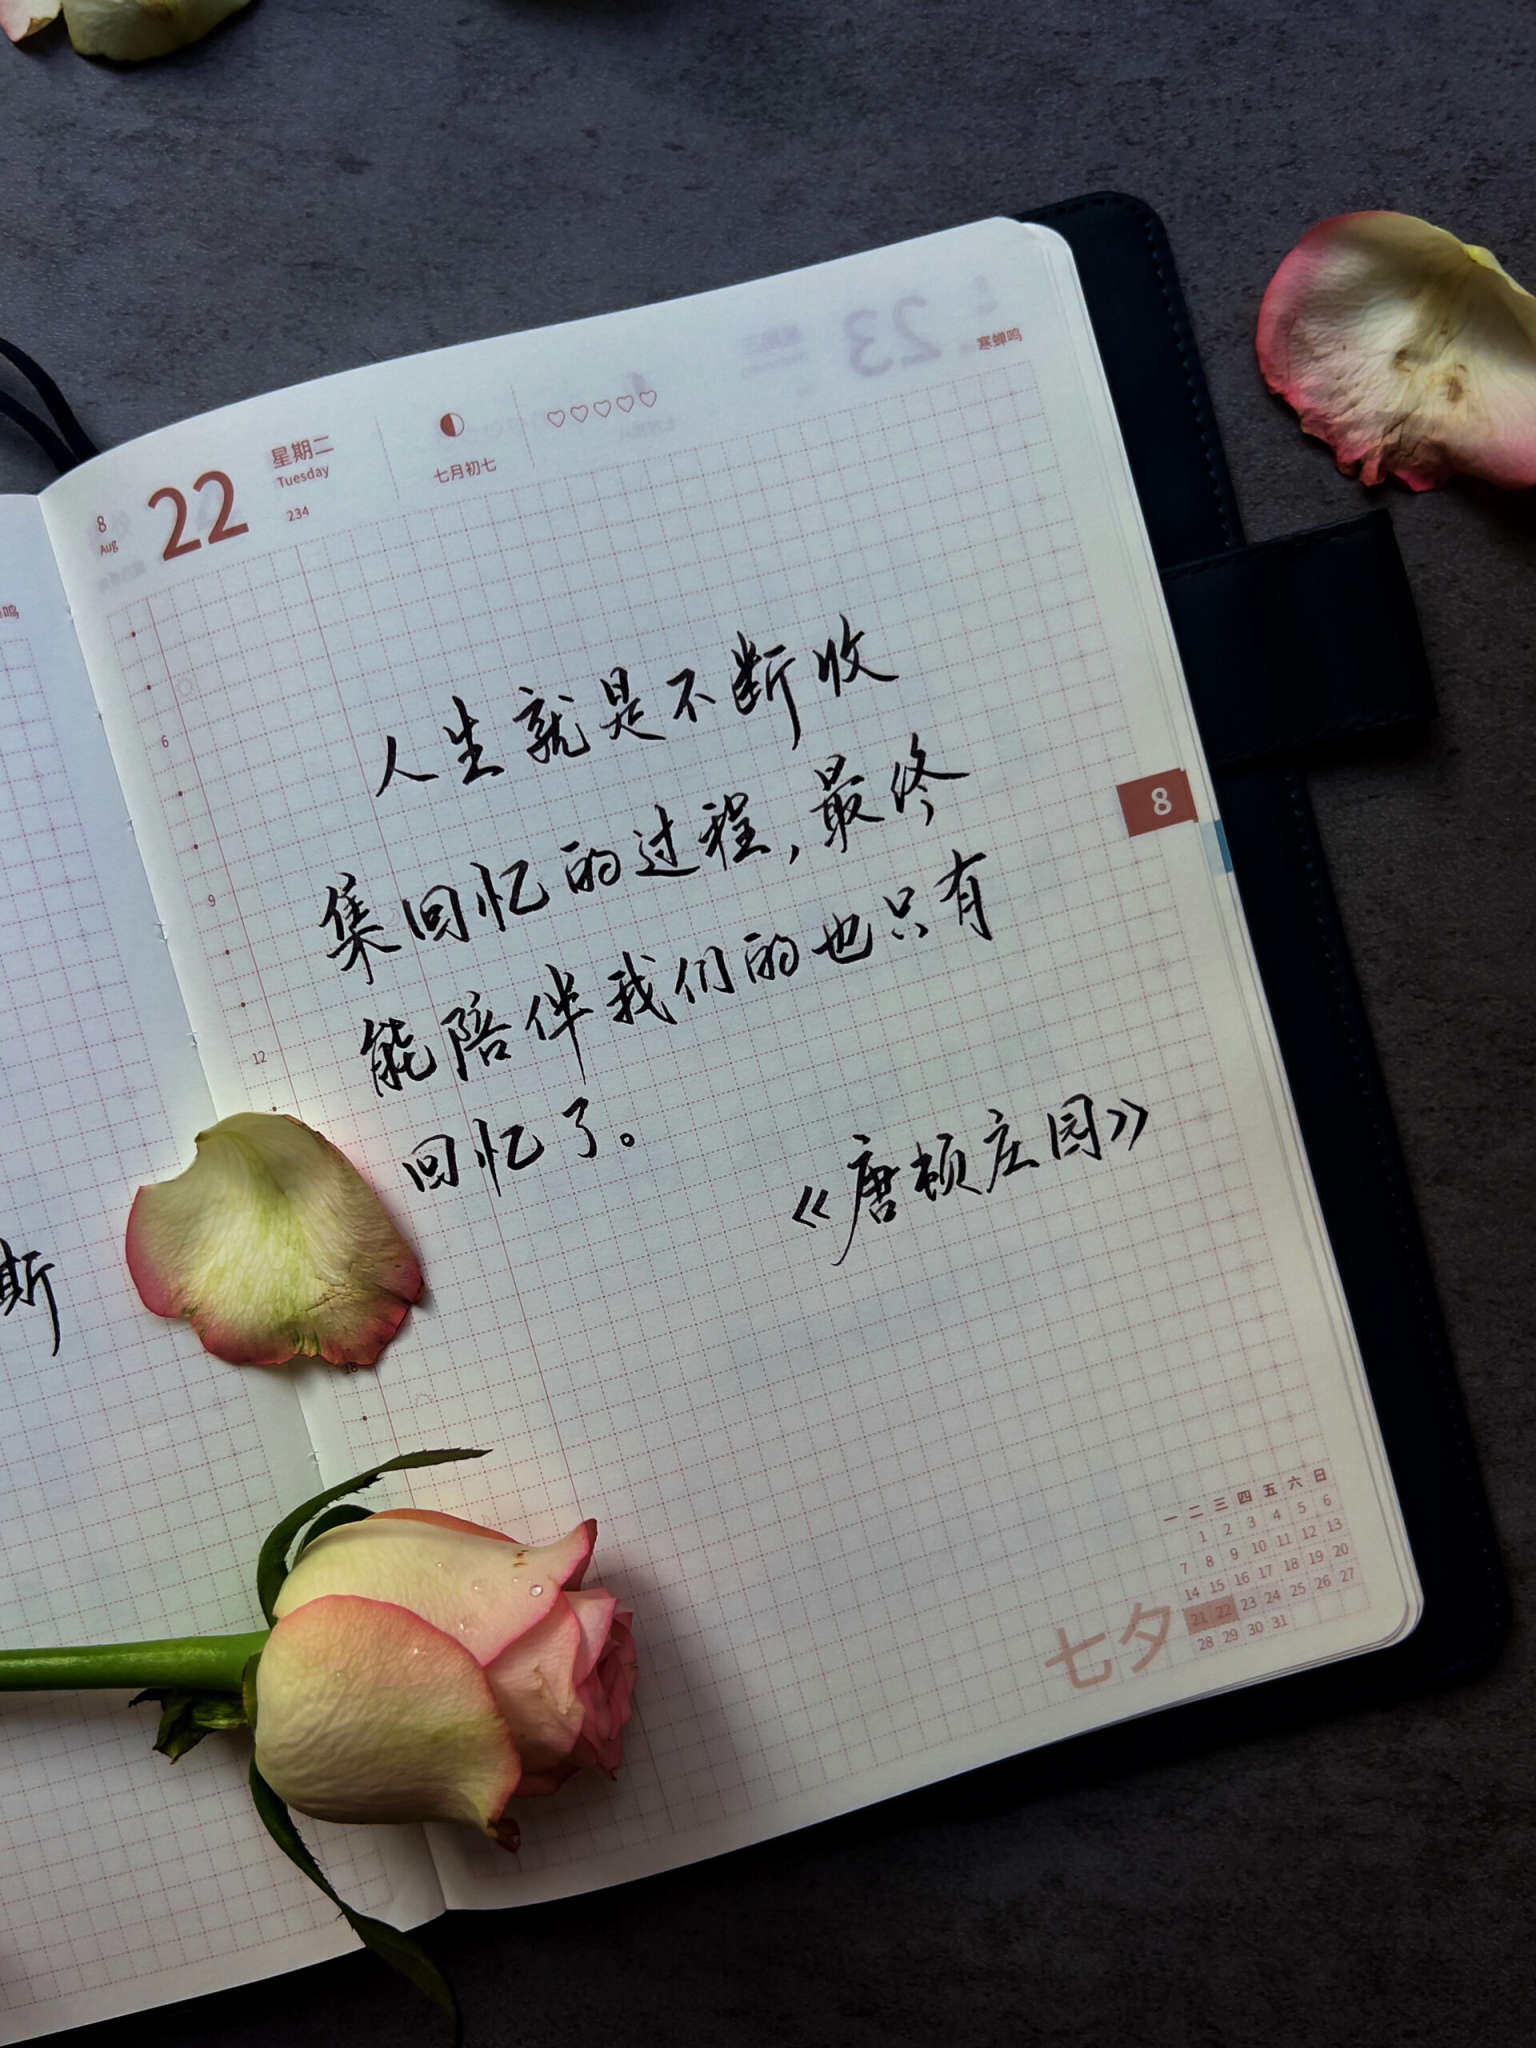 寒蝉鸣
8
Aug
22
星期二
Tuesday
234
七月初七
鸣
6
9
12
18
人生就是不断收
集回忆的过程,最终
能陪伴我们的也只有
回忆了。
《唐顿庄园》
斯
8
一 二 三 四 五 六 日
1 2 3 4 5 6
7 8 9 10 11 12 13
14 15 16 17 18 19 20
21 22 23 24 25 26 27
28 29 30 31
七夕